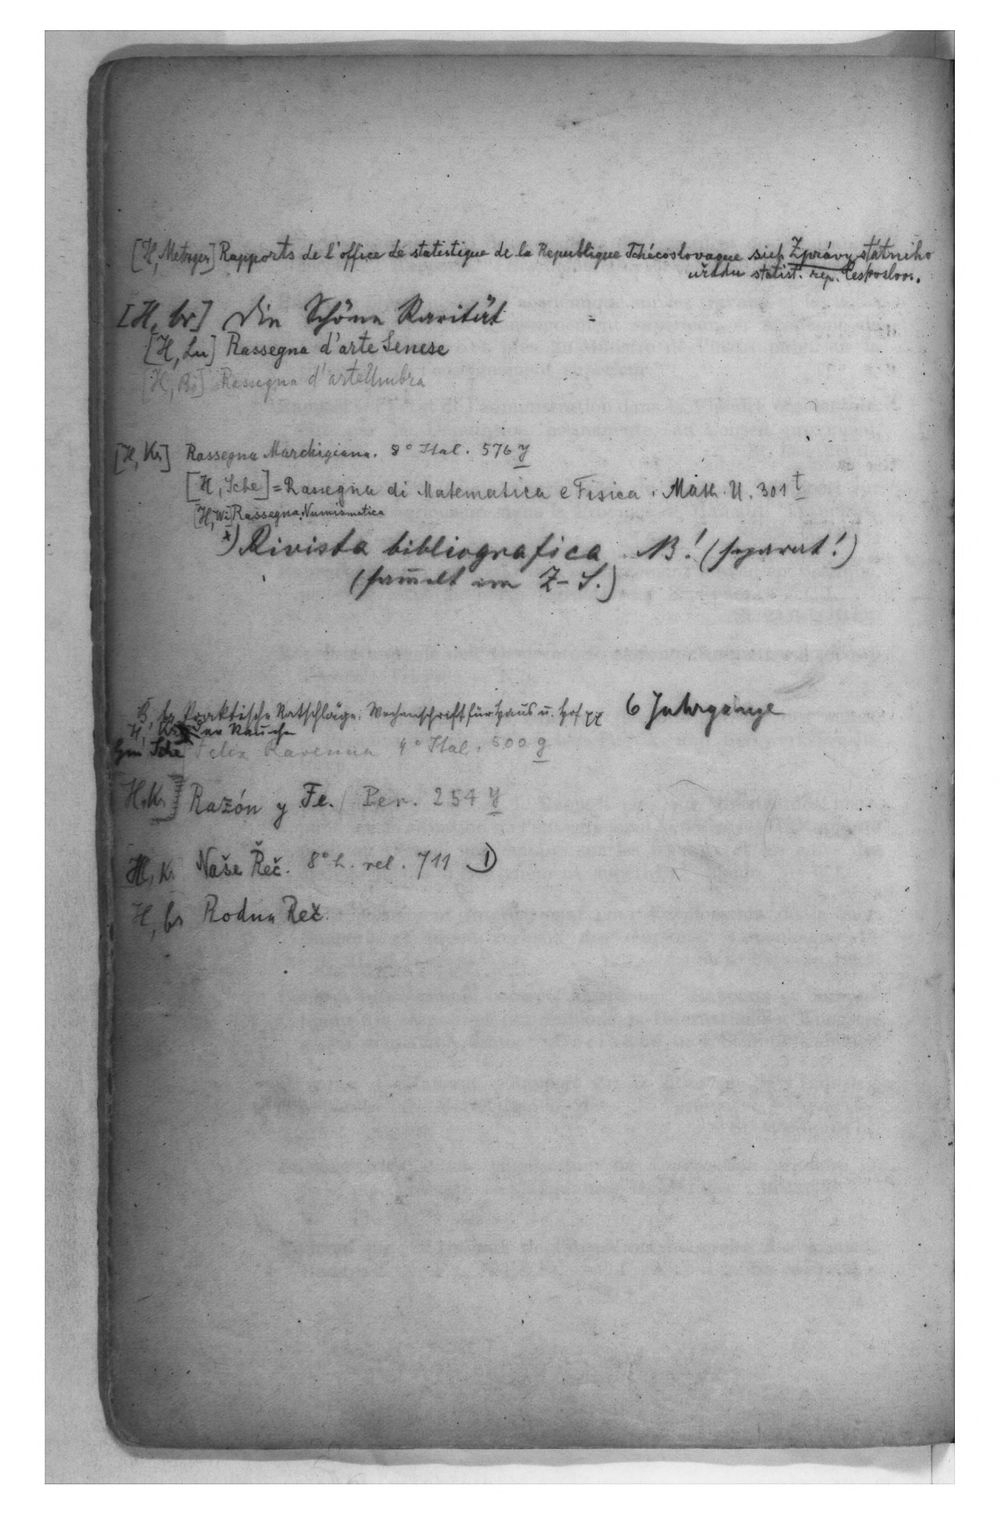 [H, Metzger] Rapports de l'office de statistique de la Republique Tchécoslovaque sieh Zprávy státního
úřadu statist. rep. Českoslov.
[H, br] Die Schöne Rarität
[H, Lu] Rassegna d'arte Senese
[H, Br] Rassegna d'arte Umbra
[H, Kr] Rassegna Marchigiana. 8° Ital. 576 y
[H, Sche] = Rassegna di Matematica e Fisica. Math. U. 301 t
[H, Wi] Rassegna Numismatica
x) Rivista bibliografica NB! (separat!)
(sammelt im Z-S.)
B, br Praktische Ratschläge. Wochenschrift für Haus u. Hof 6 Jahrgänge
H, Kr Der Rauche
Sche Felix Ravenna 4° Ital. 500 g
H, Kr] Razón y Fe. / Per. 254 y
H, Kr Naše Řeč. 8° L. rel. 711
H, br Rodna Reč.